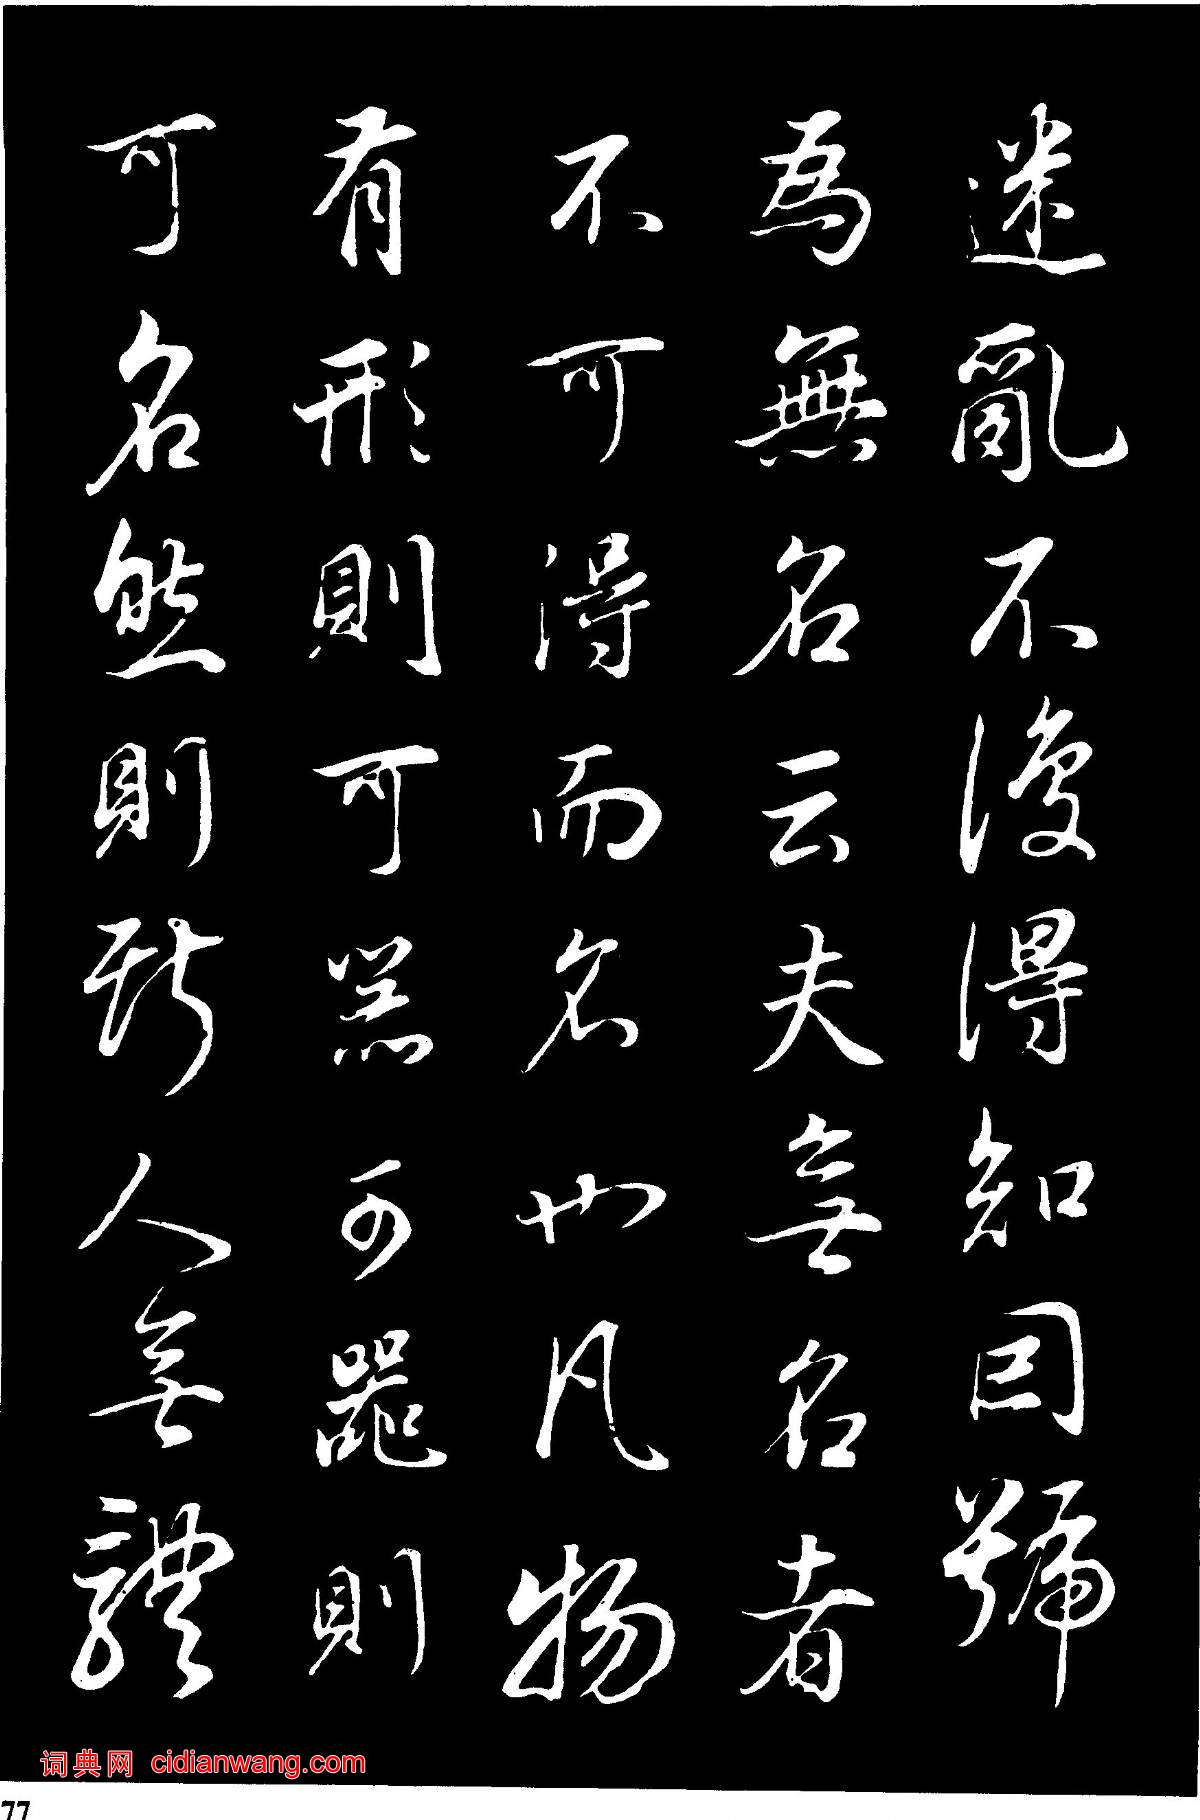 迷亂不復得知因號
為無名云夫無名者
不可得而名也凡物
有形則可器可器則
可名然則斯人無體
词典网 cidianwang.com
77